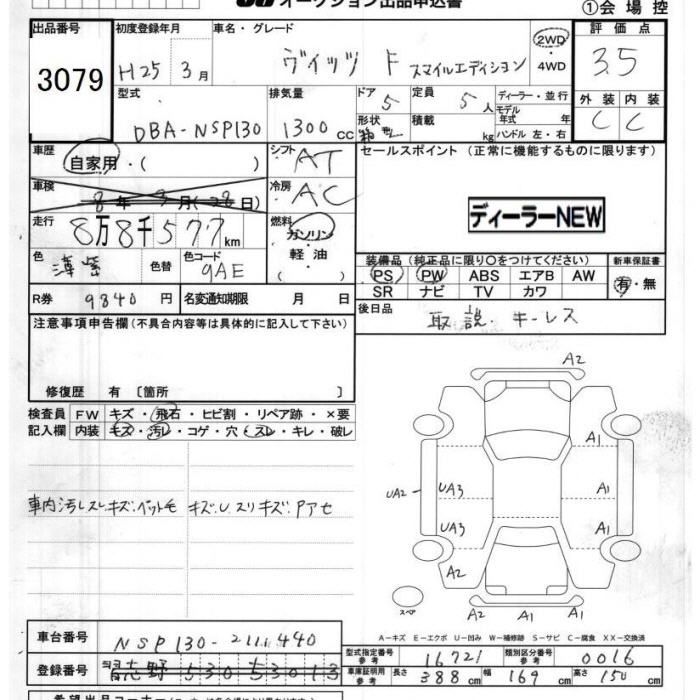 オークション出品申込書
①会場控
出品番号 初度登録年月 車名・グレード 評価点
3079 H25 3月 ヴィッツ F スマイルエディション 2WD・4WD 3.5
型式 排気量 ドア 5 定員 5人 ディーラー・並行 外装 内装
DBA-NSP130 1300cc 形状 積載 kg モデル年式 年 ハンドル 左・右 C C
車歴 自家用・( ) シフト AT セールスポイント (正常に機能するものに限ります)
車検 8年3月(28日) 冷房 AC
ディーラーNEW
走行 8万8千577km 燃料 ガソリン・軽油・( )
色 薄紫 色替 色コード 9AE
装備品(純正品に限り○をつけてください) 新車保証書
PS PW ABS エアB AW 有・無
SR ナビ TV カワ
R券 9840円 名変通知期限 月 日
後日品 取説 キーレス
注意事項申告欄(不具合内容等は具体的に記入して下さい)
修復歴 有 [箇所 ]
検査員 FW キズ・飛石・ヒビ割・リペア跡・×要
記入欄 内装 キズ・汚レ・コゲ・穴・スレ・キレ・破レ
車内汚レスレキズ・ペット毛 キズ・U.スリキズ・Pアセ
A2
A1
UA2 UA3 A1
UA3 A1
A2
スペア A2 A1 A1
A-キズ E-エクボ U-凹み W-補修跡 S-サビ C-腐食 XX-交換済
車台番号 NSP130-2111440
登録番号 習志野 530 5 3013
型式指定番号 参考 16721 類別区分番号 参考 0016
車庫証明用 参考 長さ 388cm 幅 169cm 高さ 150cm